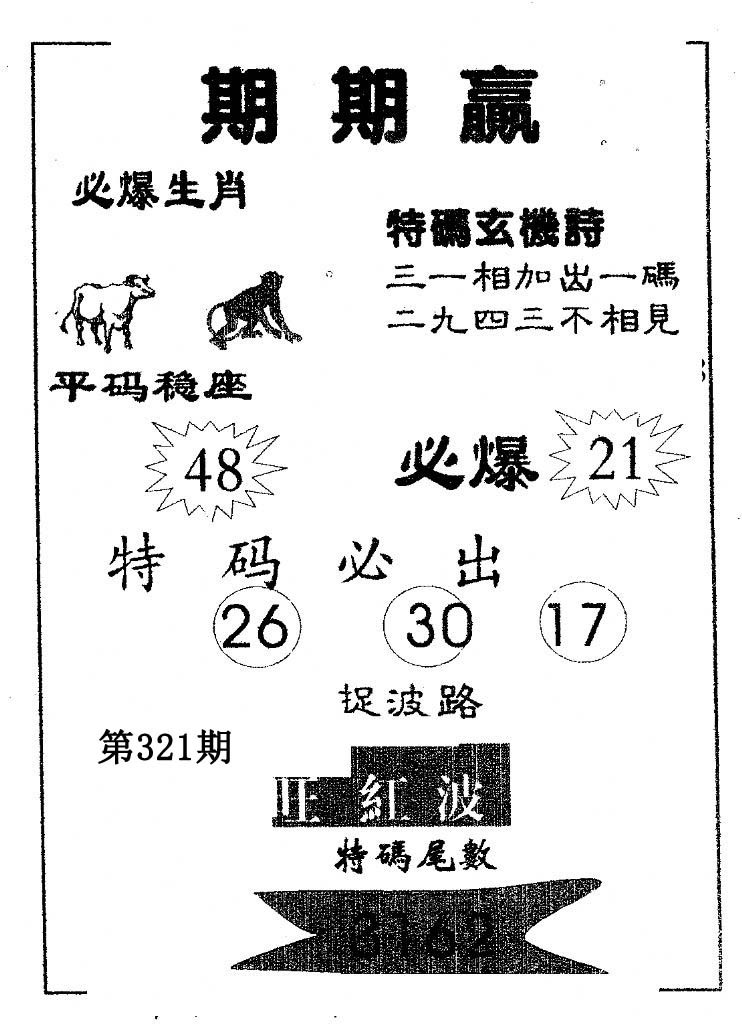 期期赢
必爆生肖
特碼玄機詩
三一相加出一碼
二九四三不相見
平码稳座
48
必爆 21
特码必出
26 30 17
捉波路
第321期
旺紅波
特碼尾數
8162